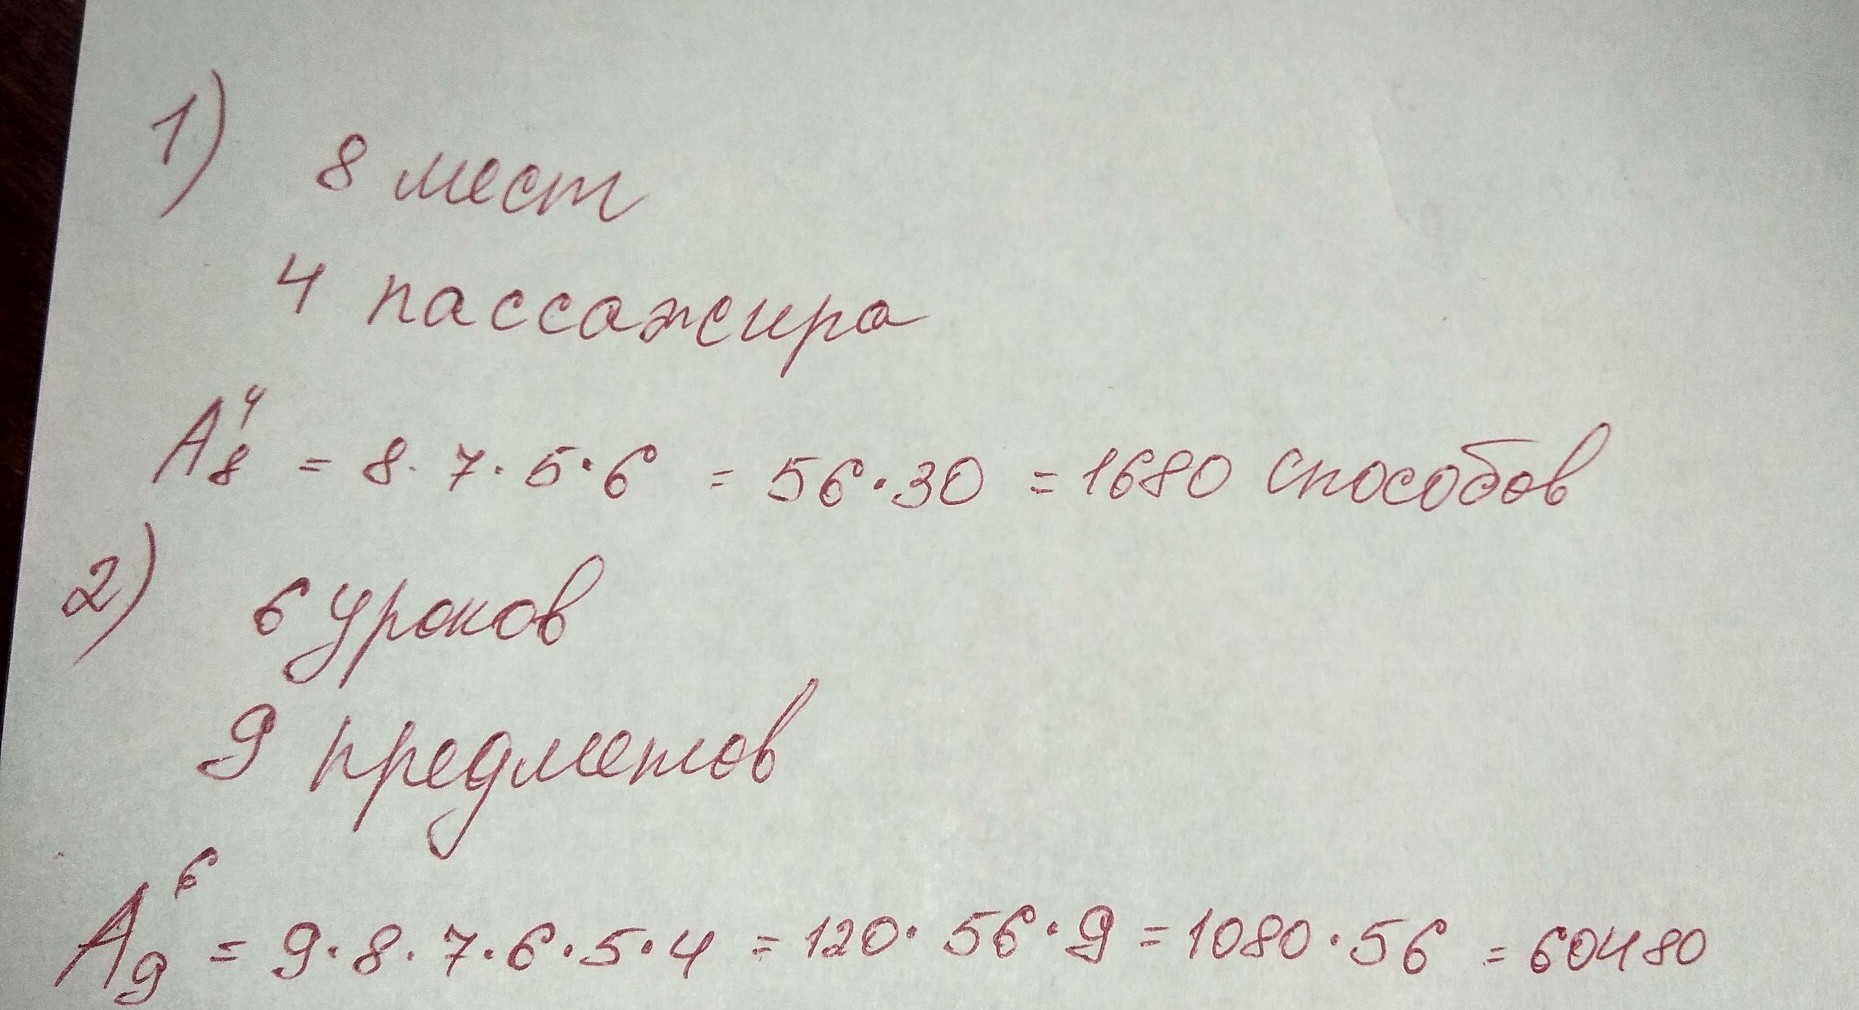 1) 8 мест
4 пассажира
A₈⁴ = 8 · 7 · 5 · 6 = 56 · 30 = 1680 способов
2) 6 уроков
9 предметов
A₉⁶ = 9 · 8 · 7 · 6 · 5 · 4 = 120 · 56 · 9 = 1080 · 56 = 60480